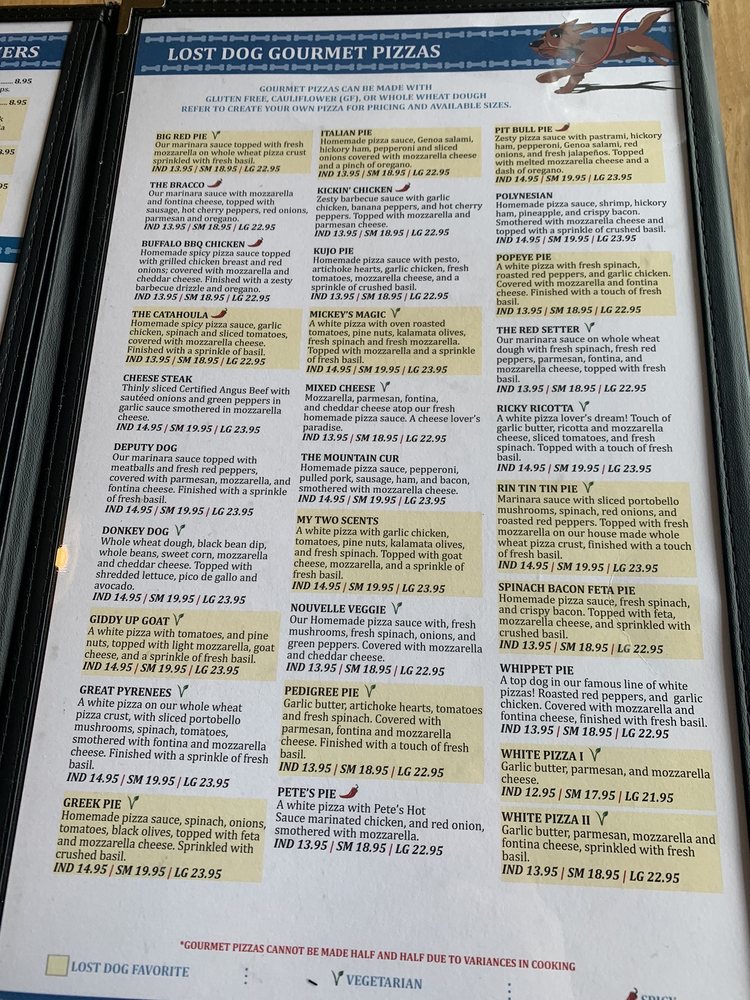 ERS
8.95
ps.
8.95
LOST DOG GOURMET PIZZAS
GOURMET PIZZAS CAN BE MADE WITH
GLUTEN FREE, CAULIFLOWER (GF), OR WHOLE WHEAT DOUGH
REFER TO CREATE YOUR OWN PIZZA FOR PRICING AND AVAILABLE SIZES.
BIG RED PIE
Our marinara sauce topped with fresh
mozzarella on whole wheat pizza crust
sprinkled with fresh basil.
IND 13.95 | SM 18.95 | LG 22.95
THE BRACCO
Our marinara sauce with mozzarella
and fontina cheese, topped with
sausage, hot cherry peppers, red onions,
parmesan and oregano.
IND 13.95 | SM 18.95 | LG 22.95
BUFFALO BBQ CHICKEN
Homemade spicy pizza sauce topped
with grilled chicken breast and red
onions; covered with mozzarella and
cheddar cheese. Finished with a zesty
barbecue drizzle and oregano.
IND 13.95 | SM 18.95 | LG 22.95
THE CATAHOULA
Homemade spicy pizza sauce, garlic
chicken, spinach and sliced tomatoes,
covered with mozzarella cheese.
Finished with a sprinkle of basil.
IND 13.95 | SM 18.95 | LG 22.95
CHEESE STEAK
Thinly sliced Certified Angus Beef with
sautéed onions and green peppers in
garlic sauce smothered in mozzarella
cheese.
IND 14.95 | SM 19.95 | LG 23.95
DEPUTY DOG
Our marinara sauce topped with
meatballs and fresh red peppers,
covered with parmesan, mozzarella, and
fontina cheese. Finished with a sprinkle
of fresh basil.
IND 14.95 | SM 19.95 | LG 23.95
DONKEY DOG
Whole wheat dough, black bean dip,
whole beans, sweet corn, mozzarella
and cheddar cheese. Topped with
shredded lettuce, pico de gallo and
avocado.
IND 14.95 | SM 19.95 | LG 23.95
GIDDY UP GOAT
A white pizza with tomatoes, and pine
nuts, topped with light mozzarella, goat
cheese, and a sprinkle of fresh basil.
IND 14.95 | SM 19.95 | LG 23.95
GREAT PYRENEES
A white pizza on our whole wheat
pizza crust, with sliced portobello
mushrooms, spinach, tomatoes,
smothered with fontina and mozzarella
cheese. Finished with a sprinkle of fresh
basil.
IND 14.95 | SM 19.95 | LG 23.95
GREEK PIE
Homemade pizza sauce, spinach, onions,
tomatoes, black olives, topped with feta
and mozzarella cheese. Sprinkled with
crushed basil.
IND 14.95 | SM 19.95 | LG 23.95
ITALIAN PIE
Homemade pizza sauce, Genoa salami,
hickory ham, pepperoni and sliced
onions covered with mozzarella cheese
and a pinch of oregano.
IND 13.95 | SM 18.95 | LG 22.95
KICKIN' CHICKEN
Zesty barbecue sauce with garlic
chicken, banana peppers, and hot cherry
peppers. Topped with mozzarella and
parmesan cheese.
IND 13.95 | SM 18.95 | LG 22.95
KUJO PIE
Homemade pizza sauce with pesto,
artichoke hearts, garlic chicken, fresh
tomatoes, mozzarella cheese, and a
sprinkle of crushed basil.
IND 13.95 | SM 18.95 | LG 22.95
MICKEY'S MAGIC
A white pizza with oven roasted
tomatoes, pine nuts, kalamata olives,
fresh spinach and fresh mozzarella.
Topped with mozzarella and a sprinkle
of fresh basil.
IND 14.95 | SM 19.95 | LG 23.95
MIXED CHEESE
Mozzarella, parmesan, fontina,
and cheddar cheese atop our fresh
homemade pizza sauce. A cheese lover's
paradise.
IND 13.95 | SM 18.95 | LG 22.95
THE MOUNTAIN CUR
Homemade pizza sauce, pepperoni,
pulled pork, sausage, ham, and bacon,
smothered with mozzarella cheese.
IND 14.95 | SM 19.95 | LG 23.95
MY TWO SCENTS
A white pizza with garlic chicken,
tomatoes, pine nuts, kalamata olives,
and fresh spinach. Topped with goat
cheese, mozzarella, and a sprinkle of
fresh basil.
IND 14.95 | SM 19.95 | LG 23.95
NOUVELLE VEGGIE
Our Homemade pizza sauce with, fresh
mushrooms, fresh spinach, onions, and
green peppers. Covered with mozzarella
and cheddar cheese.
IND 13.95 | SM 18.95 | LG 22.95
PEDIGREE PIE
Garlic butter, artichoke hearts, tomatoes
and fresh spinach. Covered with
parmesan, fontina and mozzarella
cheese. Finished with a touch of fresh
basil.
IND 13.95 | SM 18.95 | LG 22.95
PETE'S PIE
A white pizza with Pete's Hot
Sauce marinated chicken, and red onion,
smothered with mozzarella.
IND 13.95 | SM 18.95 | LG 22.95
PIT BULL PIE
Zesty pizza sauce with pastrami, hickory
ham, pepperoni, Genoa salami, red
onions, and fresh jalapeños. Topped
with melted mozzarella cheese and a
dash of oregano.
IND 14.95 | SM 19.95 | LG 23.95
POLYNESIAN
Homemade pizza sauce, shrimp, hickory
ham, pineapple, and crispy bacon.
Smothered with mozzarella cheese and
topped with a sprinkle of crushed basil.
IND 14.95 | SM 19.95 | LG 23.95
POPEYE PIE
A white pizza with fresh spinach,
roasted red peppers, and garlic chicken.
Covered with mozzarella and fontina
cheese. Finished with a touch of fresh
basil.
IND 13.95 | SM 18.95 | LG 22.95
THE RED SETTER
Our marinara sauce on whole wheat
dough with fresh spinach, fresh red
peppers, parmesan, fontina, and
mozzarella cheese, topped with fresh
basil.
IND 13.95 | SM 18.95 | LG 22.95
RICKY RICOTTA
A white pizza lover's dream! Touch of
garlic butter, ricotta and mozzarella
cheese, sliced tomatoes, and fresh
spinach. Topped with a touch of fresh
basil.
IND 14.95 | SM 19.95 | LG 23.95
RIN TIN TIN PIE
Marinara sauce with sliced portobello
mushrooms, spinach, red onions, and
roasted red peppers. Topped with fresh
mozzarella on our house made whole
wheat pizza crust, finished with a touch
of fresh basil.
IND 14.95 | SM 19.95 | LG 23.95
SPINACH BACON FETA PIE
Homemade pizza sauce, fresh spinach,
and crispy bacon. Topped with feta,
mozzarella cheese, and sprinkled with
crushed basil.
IND 13.95 | SM 18.95 | LG 22.95
WHIPPET PIE
A top dog in our famous line of white
pizzas! Roasted red peppers, and garlic
chicken. Covered with mozzarella and
fontina cheese, finished with fresh basil.
IND 13.95 | SM 18.95 | LG 22.95
WHITE PIZZA I
Garlic butter, parmesan, and mozzarella
cheese.
IND 12.95 | SM 17.95 | LG 21.95
WHITE PIZZA II
Garlic butter, parmesan, mozzarella and
fontina cheese, sprinkled with fresh
basil.
IND 13.95 | SM 18.95 | LG 22.95
*GOURMET PIZZAS CANNOT BE MADE HALF AND HALF DUE TO VARIANCES IN COOKING
LOST DOG FAVORITE
VEGETARIAN
SPICY